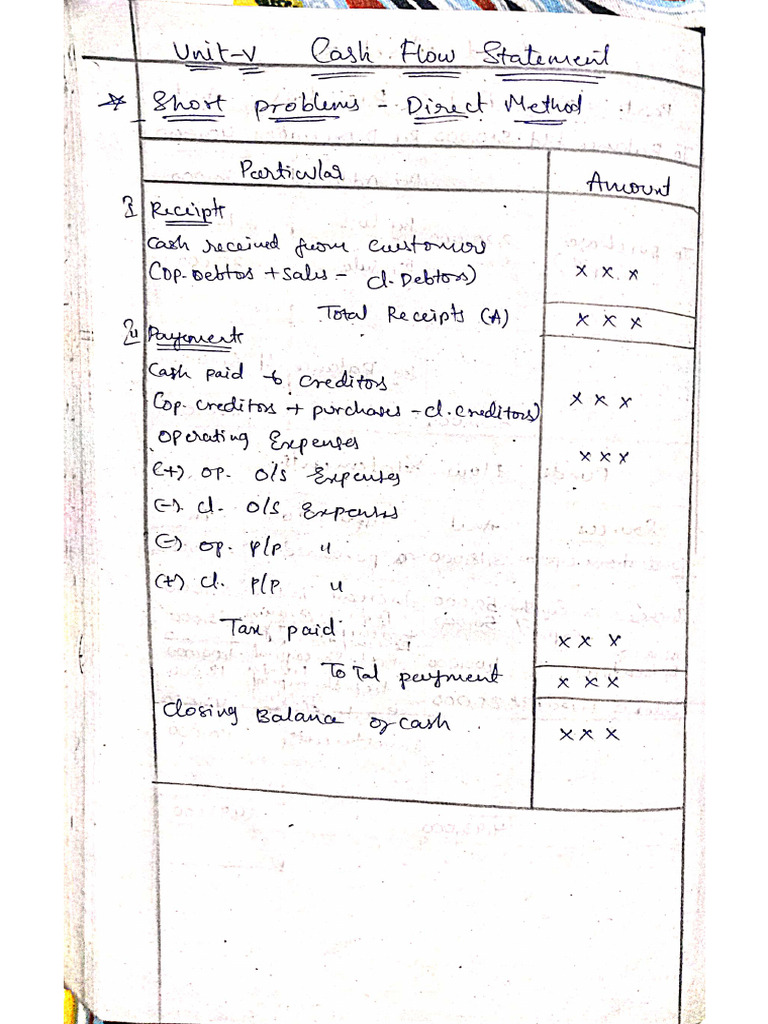 Unit-V Cash Flow Statement
* Short problems - Direct Method
Particular Amount
I Receipt
Cash received from customers
(op. Debtos + Sales - cl. Debtors) x x x
Total Receipts (A) x x x
Payment
Cash paid to creditors
(op. creditors + purchases - cl. creditors) x x x
operating Expenses x x x
(+) op. O/S Expenses
(-) cl. O/S Expenses
(-) op. P/P "
(+) cl. P/P "
Tax paid x x x
Total payment x x x
Closing Balance of cash x x x